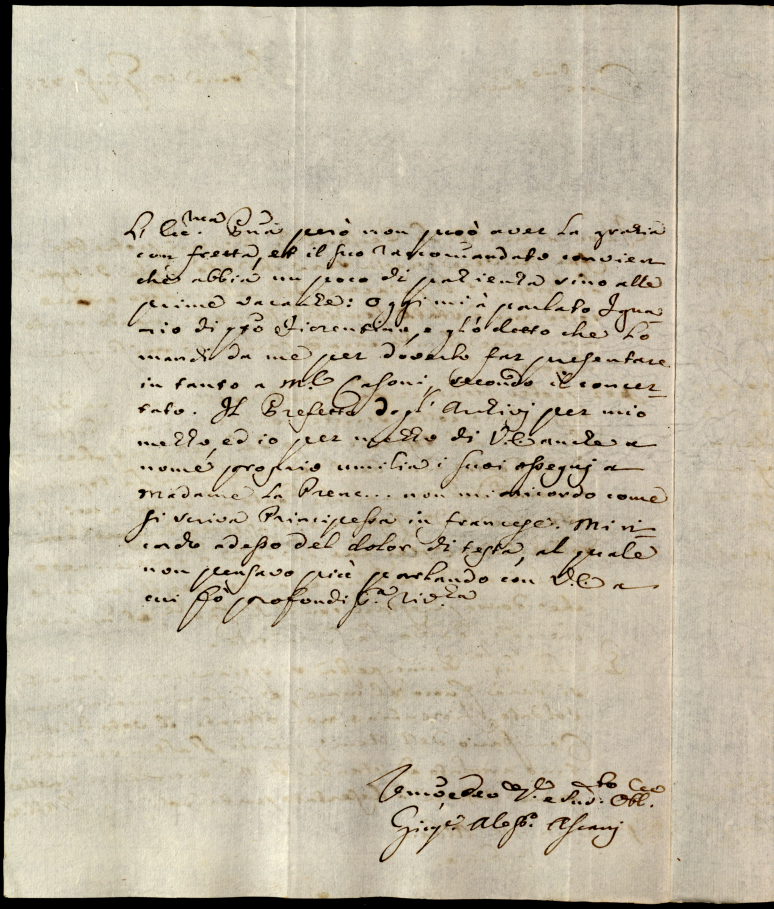 però non può aver la grazia
con fretta, et il suo raccomandato convien
che abbia un poco di patienza sino alle
prime vacanze: oggi mi à parlato Igna
tio di Fiorentino, e gl'ò detto che lo
mandi da me per doverlo far presentare
in tanto a M.r Casoni, secondo il concer-
tato. Il Prefetto degl' Antivi per mio
mezzo, ed io per mezzo di V.E anche a
nome proprio umilia i suoi ossequj a
Madame la Prenc... non mi ricordo come
si scriva Principessa in francese. Mi ri-
cordo adesso del dolor di testa, al quale
non pensavo più parlando con V.E a
cui fò profondis.ma riv.za
e Obl.
Aless.o Ascanj